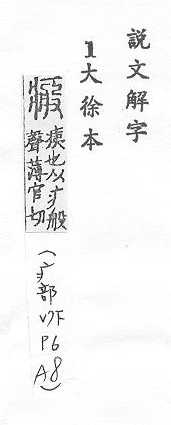 説文解字
1大徐本
瘢
痍也从疒般
聲薄官切
(疒部 V7下 P6 A8)